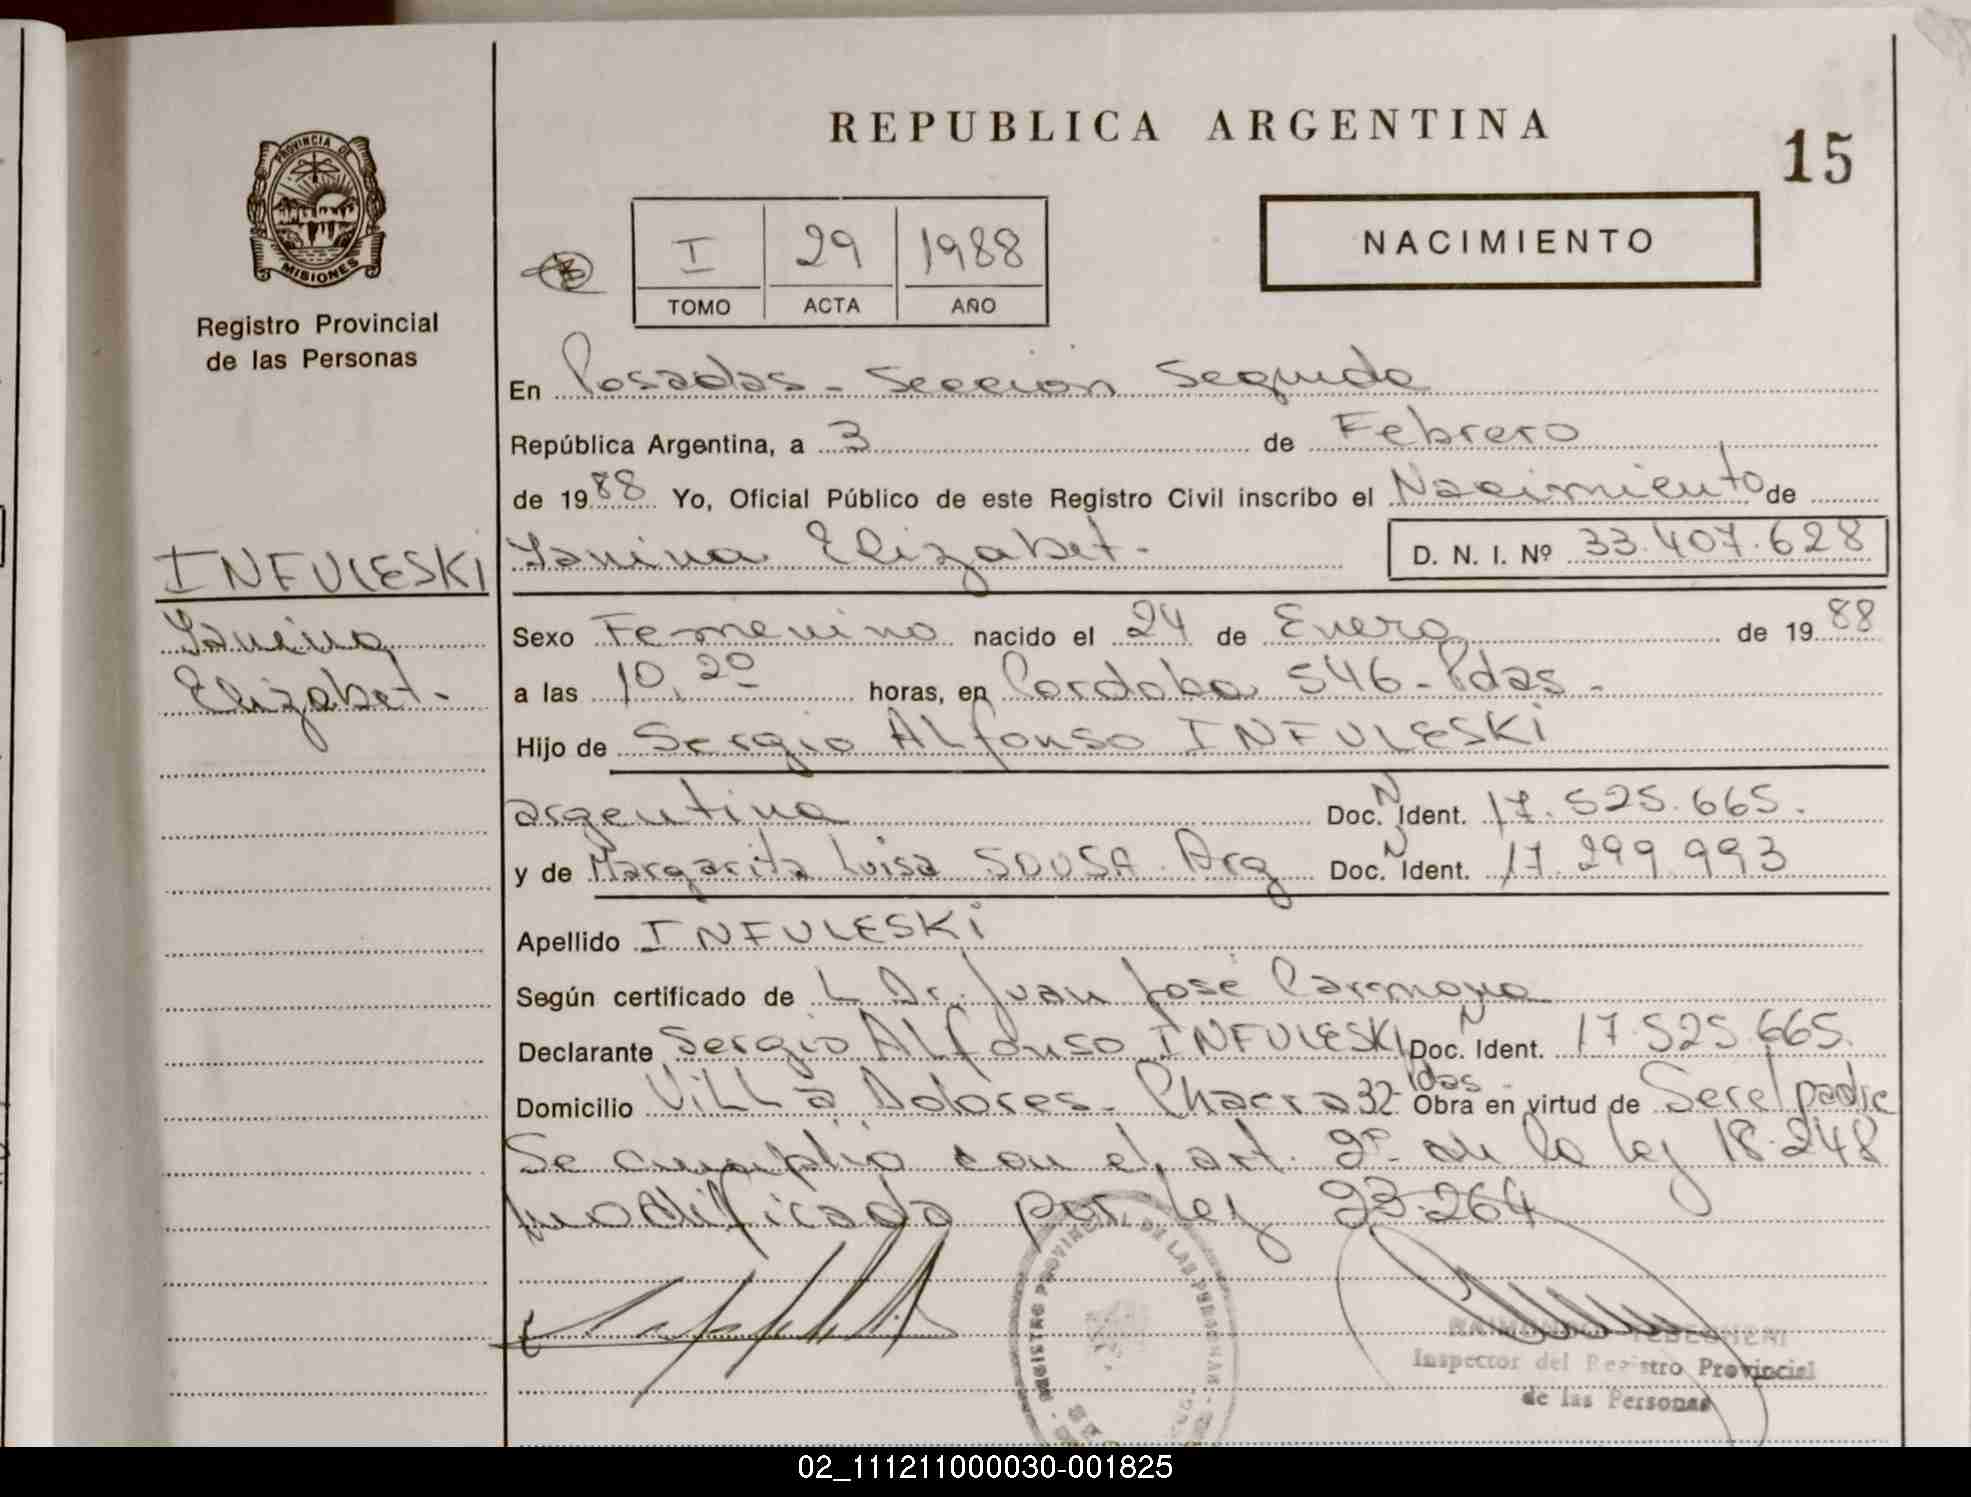 REPUBLICA ARGENTINA
15
PROVINCIA DE
MISIONES
Registro Provincial
de las Personas
I 29 1988
TOMO ACTA AÑO
NACIMIENTO
En Posadas - Seccion Segunda
República Argentina, a 3 de Febrero
de 1988 Yo, Oficial Público de este Registro Civil inscribo el Nacimiento de
INFULESKI
Yanina
Elizabet.-
Yanina Elizabet.- D. N. I. Nº 33.407.628
Sexo Femenino nacido el 24 de Enero de 1988
a las 10,20 horas, en Cordoba 546 - Pdas -
Hijo de Sergio ALfonso INFULESKI
argentina Doc. N Ident. 17.525.665.
y de Margarita Luisa SOUSA Arg Doc. N Ident. 17.299.993
Apellido INFULESKI
Según certificado de L Dr. Juan José Carmona
Declarante Sergio ALfonso INFULESKI Doc. N Ident. 17.525.665.
Domicilio ViLLa Dolores - Chacra 32- Pdas - Obra en virtud de Ser el padre
Se cumplio con el art. 2º de la ley 18.248
modificada por ley 23.264
REGISTRO PROVINCIAL DE LAS PERSONAS
MISIONES
Inspector del Registro Provincial
de las Personas
02_111211000030-001825